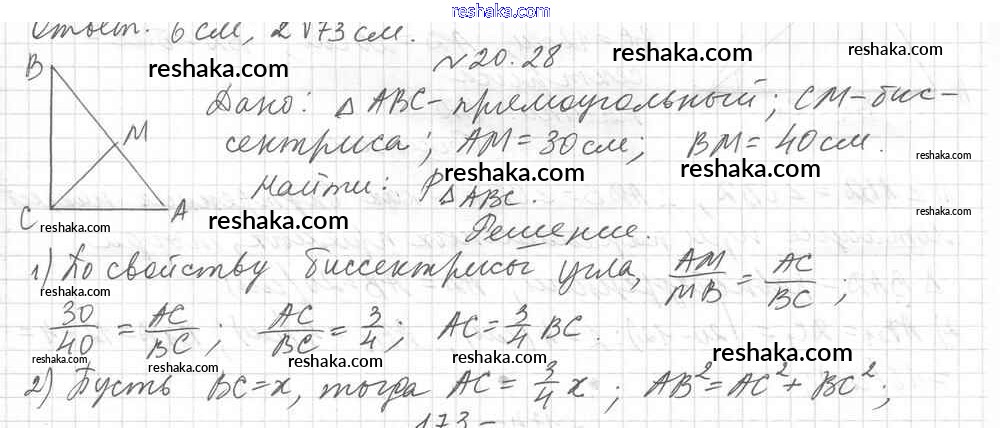 reshaka.com
Ответ: 6 см, 2√73 см.
№20.28
reshaka.com
reshaka.com
B
Дано: △ABC - прямоугольный; CM - бис-
M
сектриса; AM = 30 см; BM = 40 см.
reshaka.com
reshaka.com
Найти: P△ABC.
C A
reshaka.com
reshaka.com
reshaka.com
Решение.
1) По свойству биссектрисы угла, AM/MB = AC/BC;
reshaka.com
30/40 = AC/BC; AC/BC = 3/4; AC = 3/4 BC.
reshaka.com
reshaka.com
reshaka.com
reshaka.com
2) Пусть BC = x, тогда AC = 3/4 x; AB² = AC² + BC²;